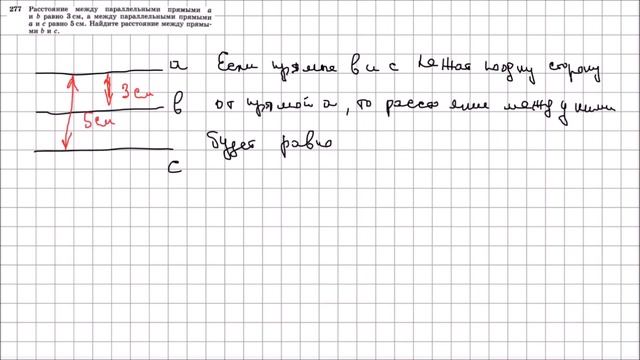 277 Расстояние между параллельными прямыми a
и b равно 3 см, а между параллельными прямыми
a и c равно 5 см. Найдите расстояние между прямы-
ми b и c.
a Если прямые b и c лежат по одну сторону
3 см
b от прямой a, то расстояние между ними
5 см
будет равно
c